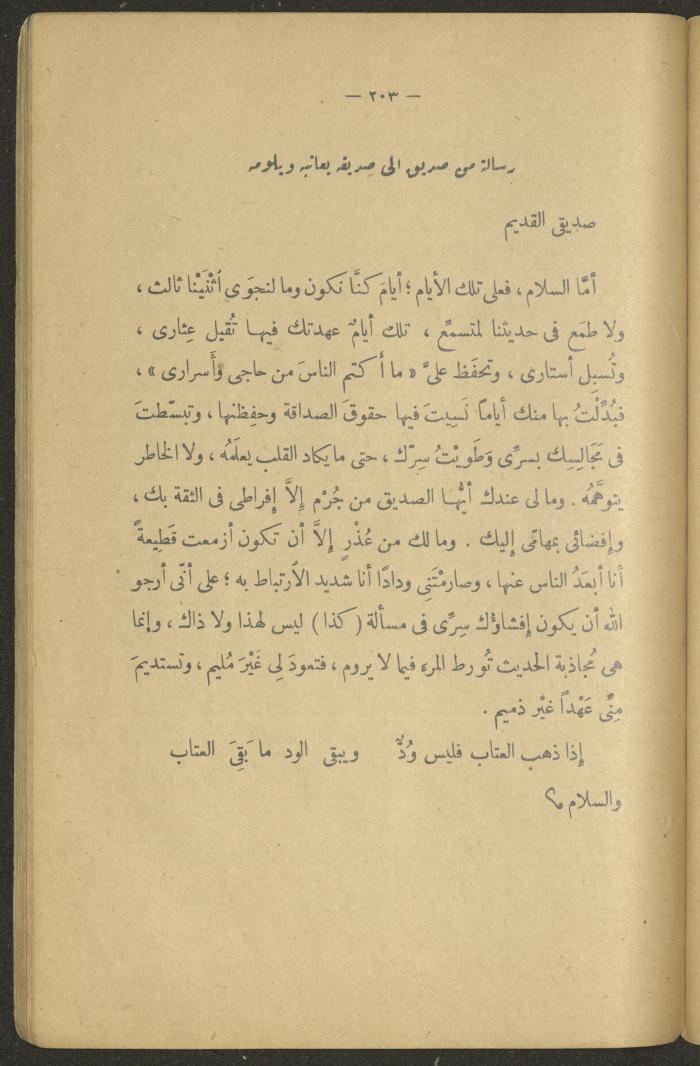 — ٢٠٣ —
رسالة من صديق الى صديقه يعاتبه ويلومه
صديقى القديم
أمَّا السلام، فعلى تلك الأيام؛ أيامَ كنَّا نكون وما لنجوَى ٱثْنَيْنا ثالث،
ولا طمَع فى حديثنا لمتسمِّع، تلك أيامٌ عهدتك فيها تُقيل عِثارى،
وتُسبِل أستارى، وتحفَظ علىَّ « ما أكتم الناسَ من حاجى وأَسرارى »،
فبُدِّلْتُ بها منك أياماً نَسِيتَ فيها حقوقَ الصداقة وحفِظتها، وتبسّطتَ
فى مَجَالِسِك بسرِّى وَطَويْتُ سِرّك، حتى ما يكاد القلب يعلَمُه، ولا الخاطر
يتوهَّمُه. وما لى عندك أيُّها الصديق من جُرْم إِلاَّ إِفراطى فى الثقة بك،
وإِفضائى بمهامّى إِليك. وما لك من عُذْرٍ إِلاَّ أن تكون أزمعت قَطِيعةً
أنا أبعَدُ الناس عنها، وصارمْتَنِى ودادًا أنا شديد الٱرتباط به؛ على أنّى أرجو
الله أن يكون إِفشاؤك سِرِّى فى مسألة (كذا) ليس لهذا ولا ذاك، وإنما
هى مُجاذبة الحديث تُورط المرء فيما لا يروم، فتعودَ لِى غَيْرَ مُليم، وتستديمَ
مِنِّى عَهْداً غيْر ذميم.
إِذا ذهب العتاب فليس وُدٌّ ويبقى الود ما بَقِىَ العتاب
والسلام